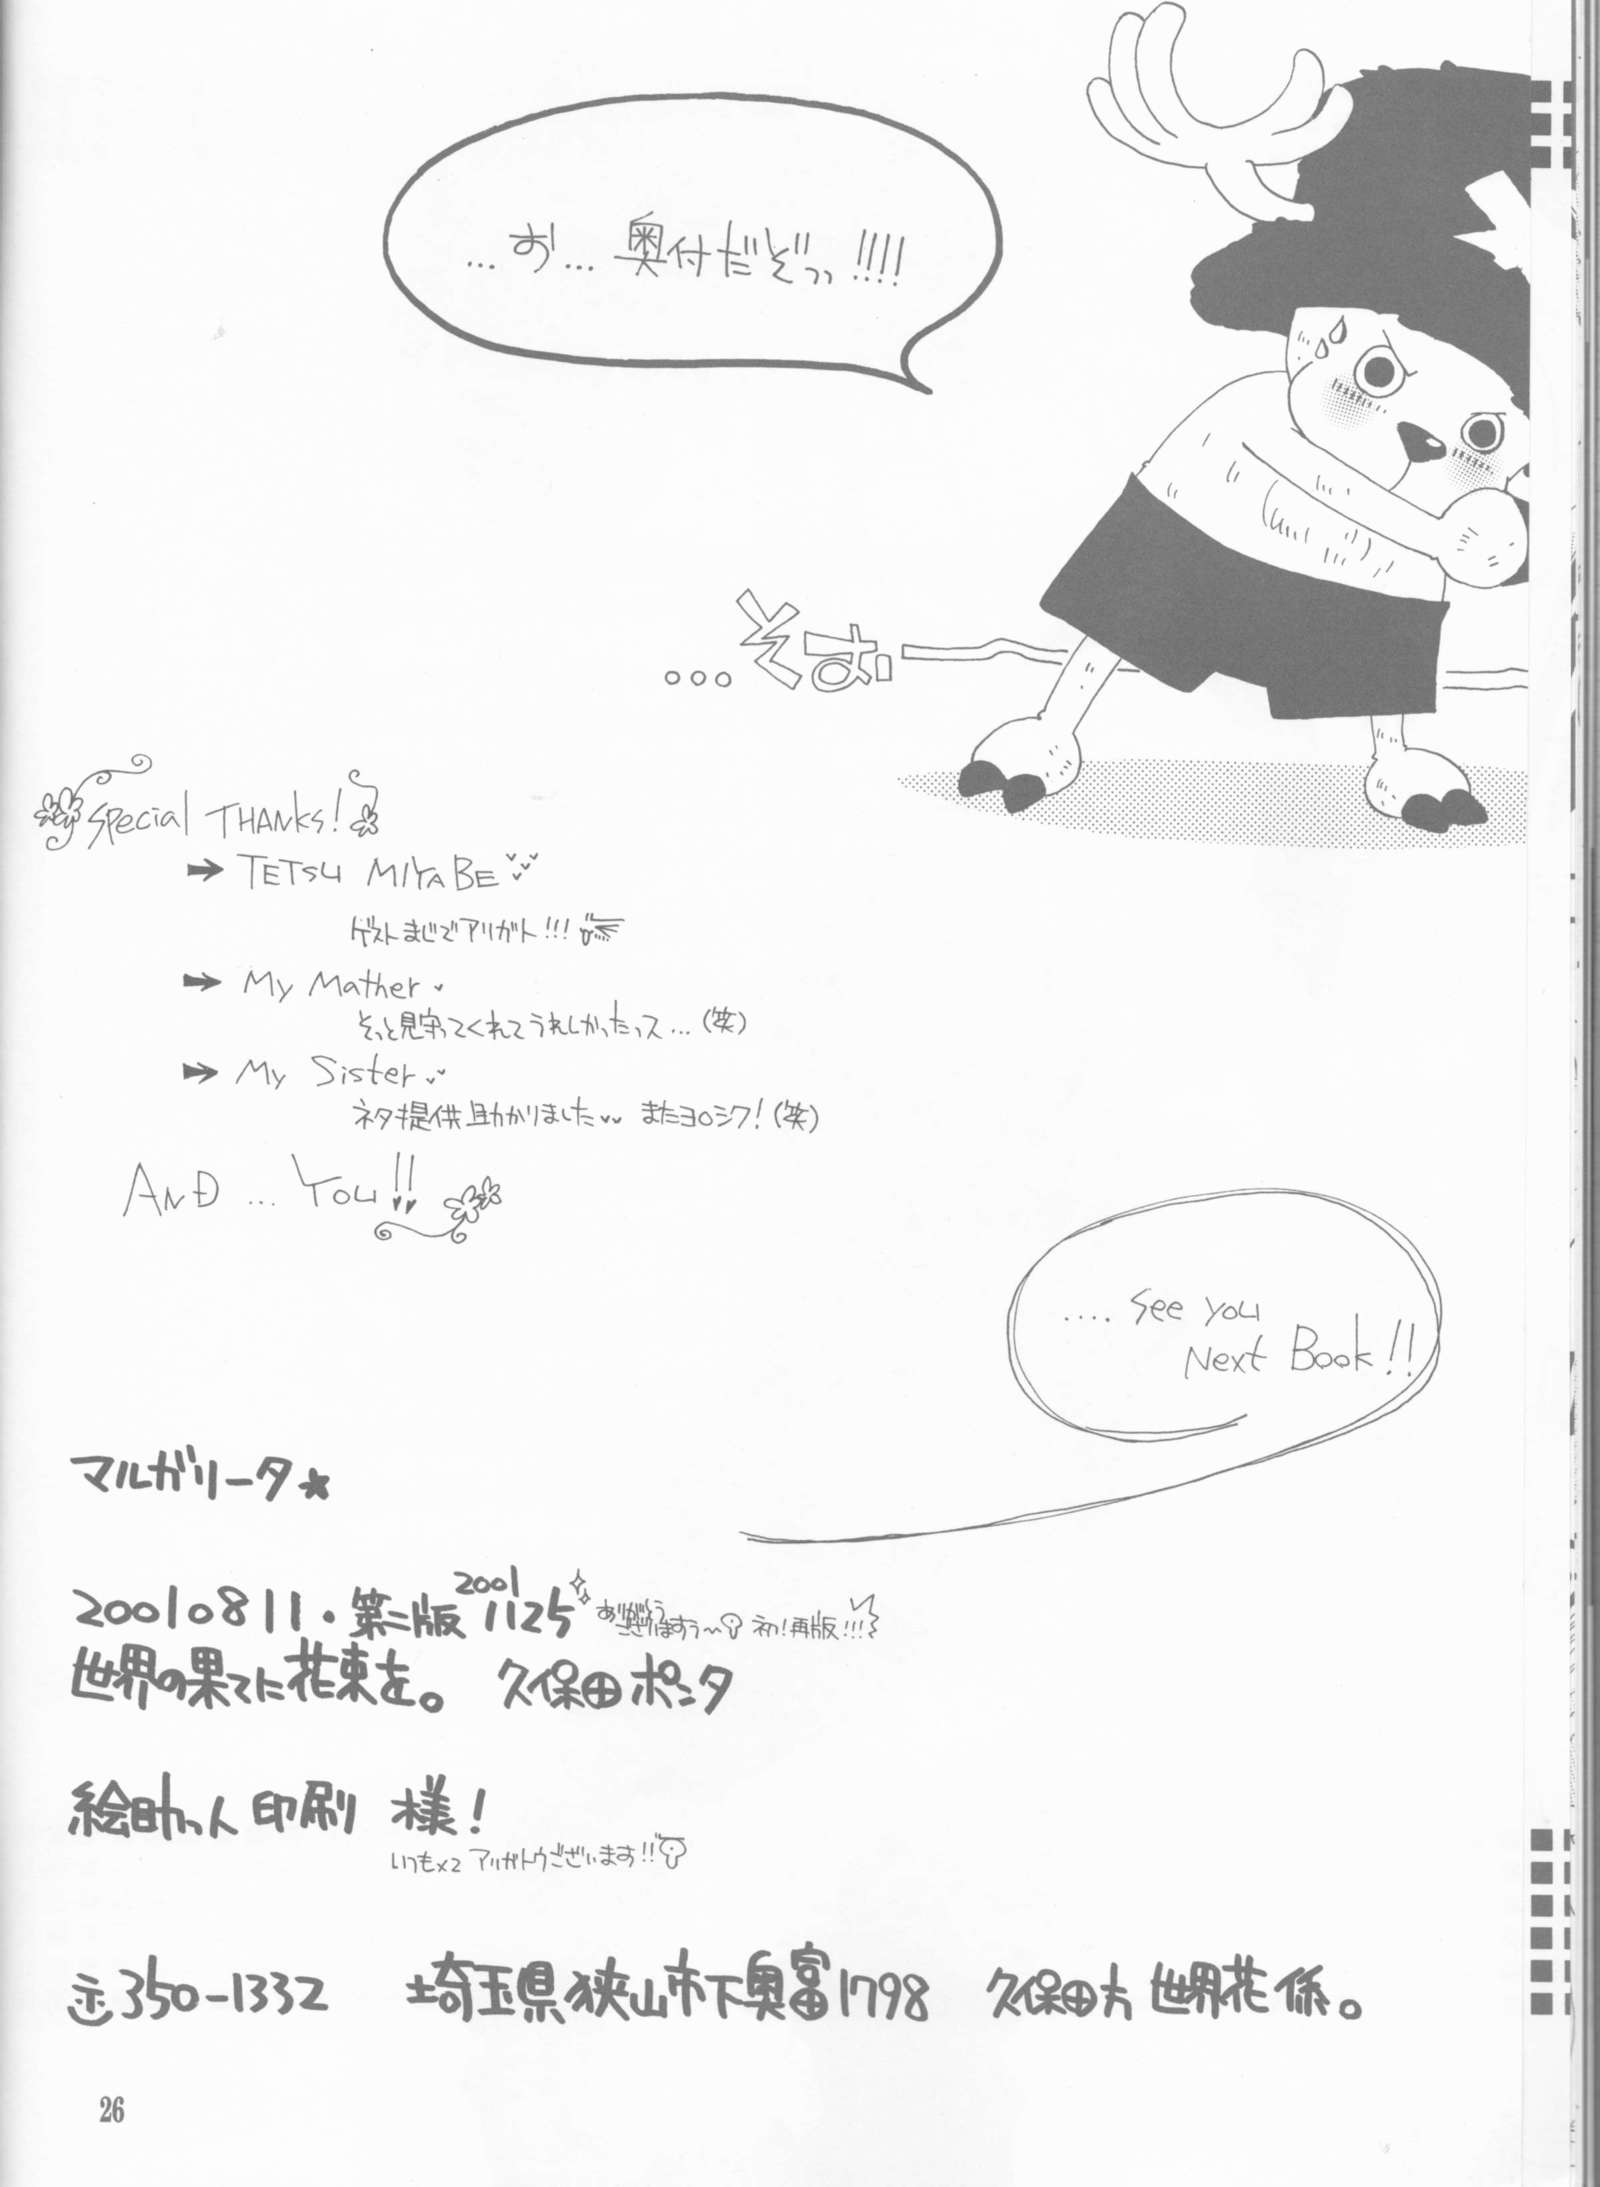 …お…奥付だぞっっ!!!!
…そお
Special THANKS!
➡ TETSU MIYABE
ゲストまじでアリガト!!!
➡ My Mather
そっと見守ってくれてうれしかったっス…(笑)
➡ My Sister
ネタ提供助かりました またヨロシク!(笑)
AND … YOU!!
.... See you
Next Book!!
マルガリータ★
20010811・第二版 2001 1125
ありがとう
ございますう〜 初!再版!!!
世界の果てに花束を。 久保田ポンタ
絵助っ人印刷 様!
いつも×2 アリガトウございます!!
〒350-1332 埼玉県狭山市下奥富1798 久保田方 世界花係。
26